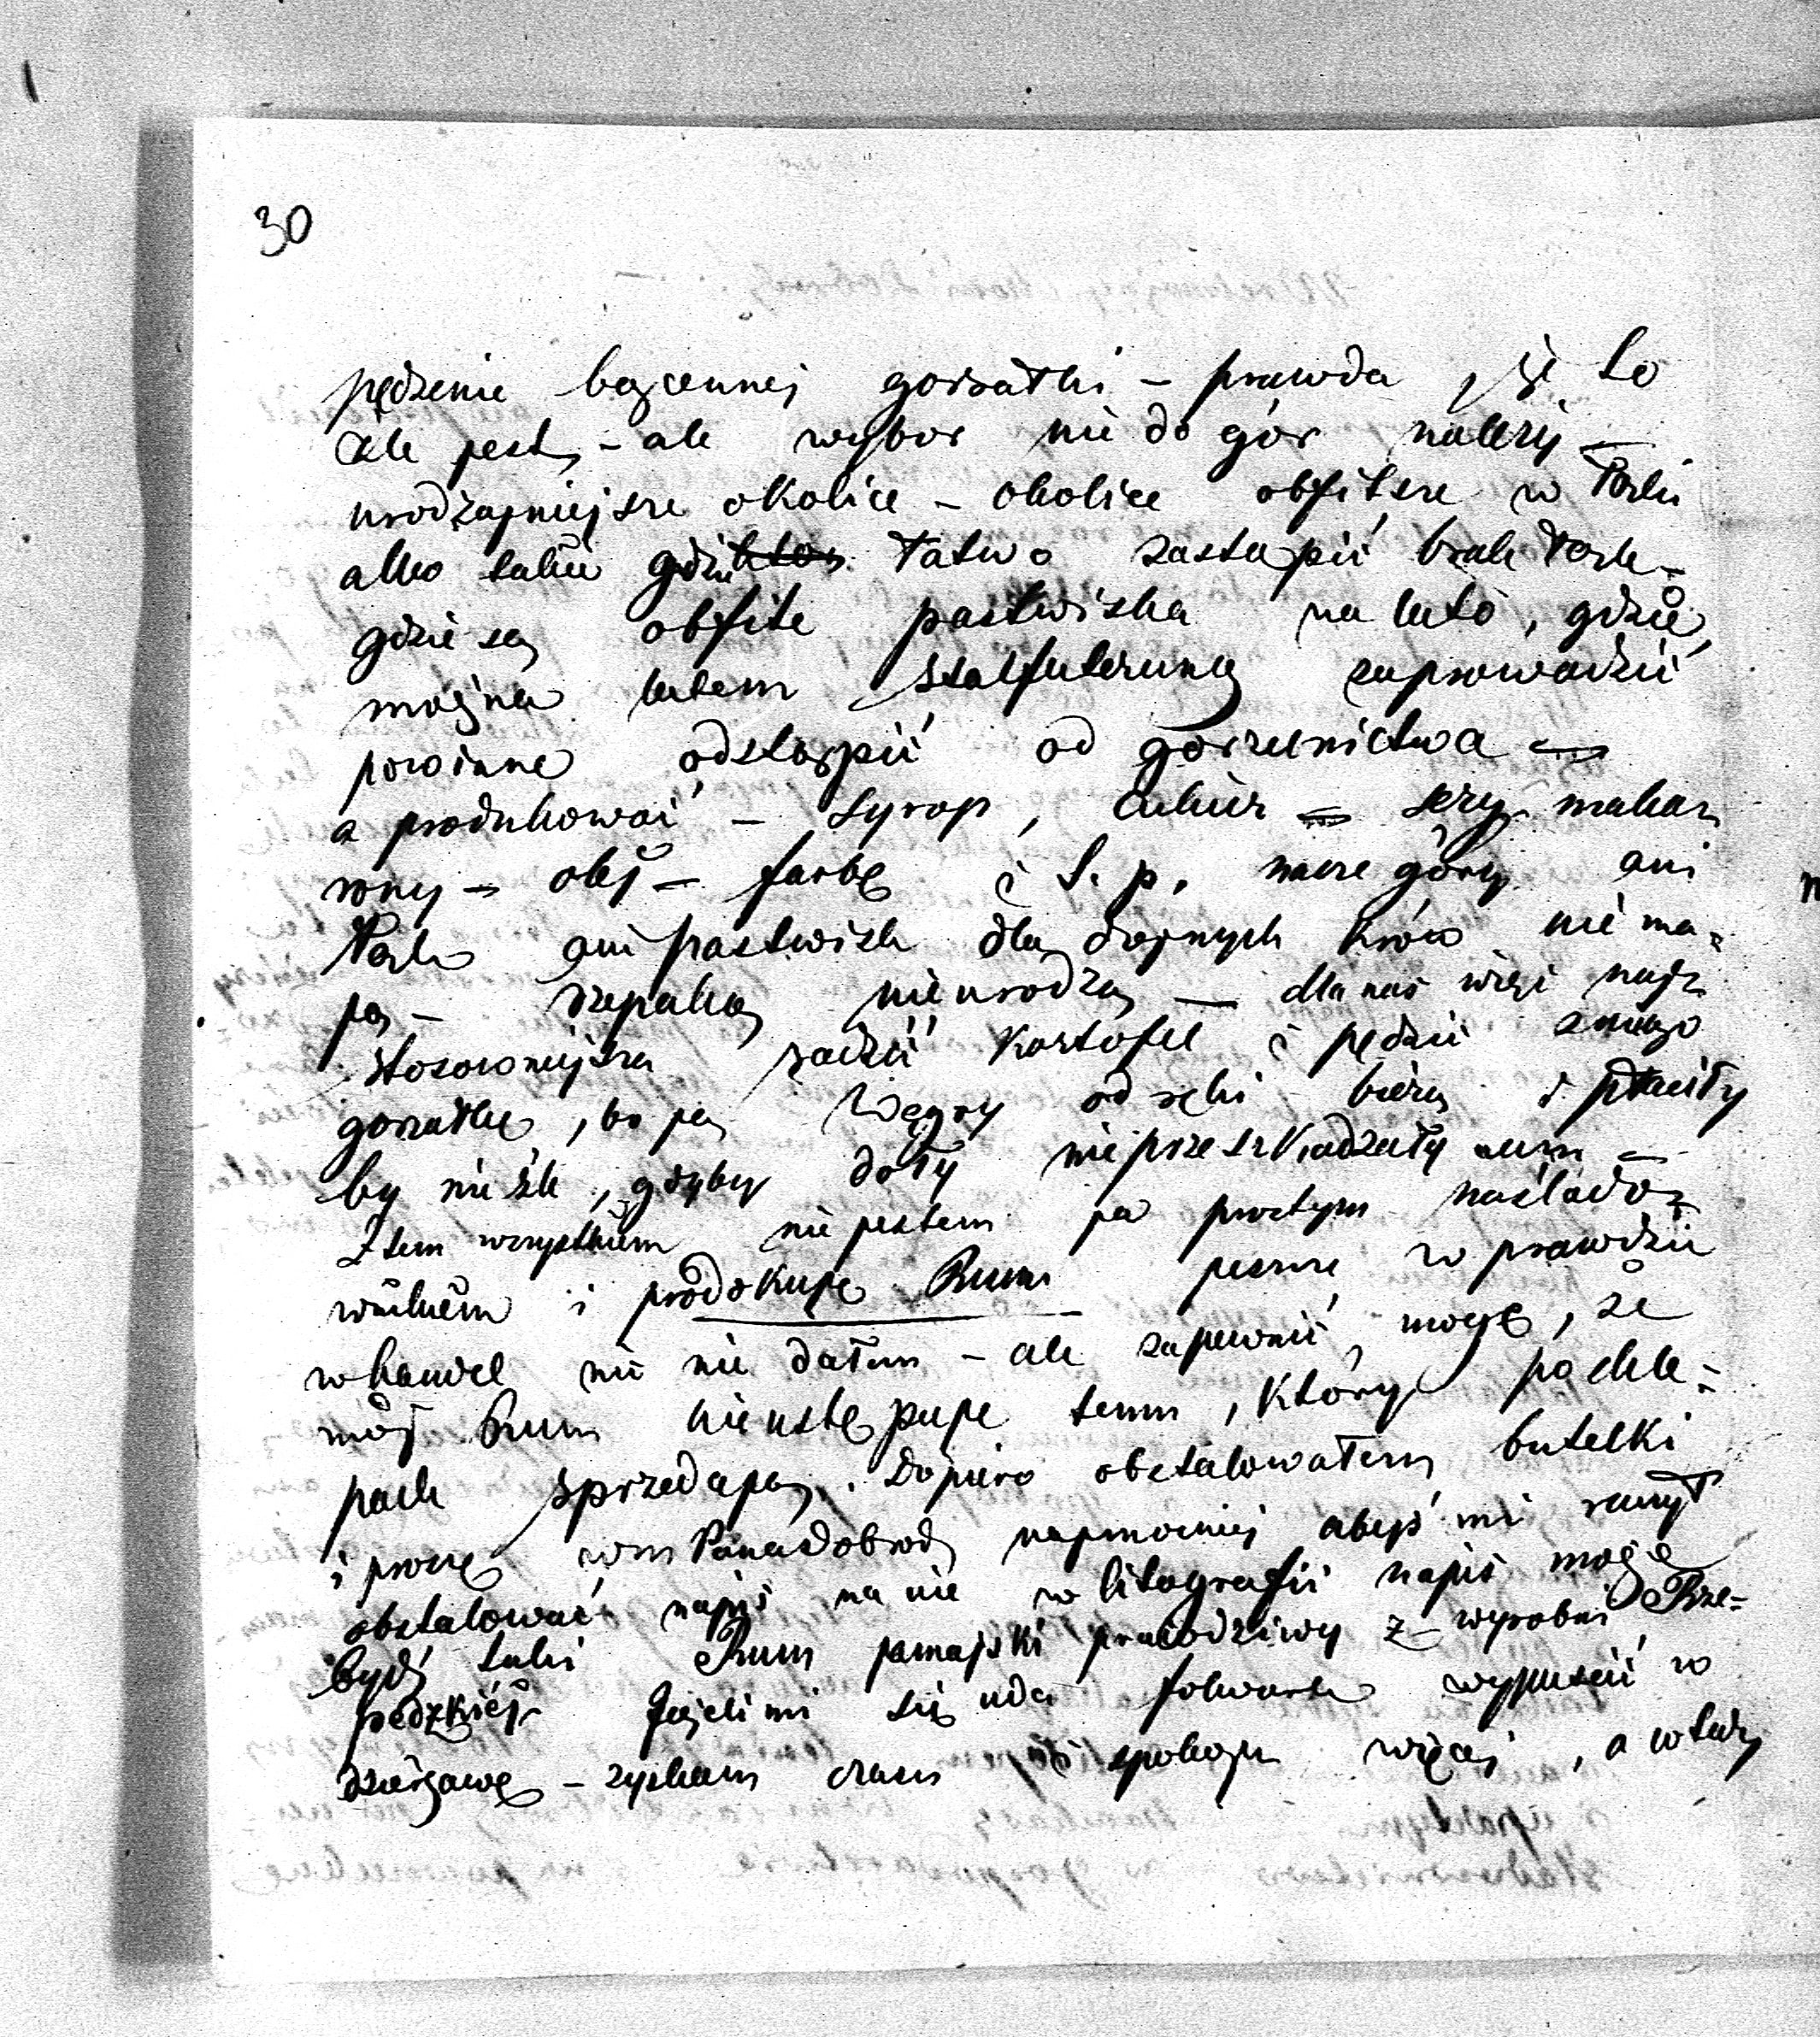 30
pędzenie bezcennej gorzałki – prawda że to
źle jest, – ale wybór nie do gór należy –
urodzajniejsze okolice – okolice obfitsze w łąki
albo takie gdzie łatwo zastąpić brak łąk –
gdzie są obfite pastwiska na lato, gdzie
można latem stalfuterung zaprowadzić
powinne odstąpić od gorzelnictwa –
a produkować – syrop, cukier – sery maka=
rony – olej – farbę i t. p. nasze góry ani
łąk ani pastwisk dla dojnych krów nie ma=
ją – rzepaku nie urodzą – dla nas więc naj=
stosowniejsza sadzić kartofle i pędzić z niego
gorzałkę, bo ją Węgry od ręki biorą i płaciły
by nieźle, gdyby doły nieprzeszkadzały nam –
Z tem wszystkiem nie jestem ja prostym naślado=
wnikiem i prodokuję Rum jeszcze w prawdzie
w handel nic nie dałem – ale zapewnić mogę, że
mój Rum nieustępuje temu, który po skle=
pach sprzedają. Dopiero obstalowałem butelki
i proszę wm Pana dobrodz najmocniej abyś mi raczył
obstalować napis na nie w litografii napis może
bydź taki Rum jamajski prawdziwy z wyrobni Prze=
Jeżeli mi się uda folwark wypuścić w
dzierżawę – zyskam czasu i spokoju więcej, a wtedy